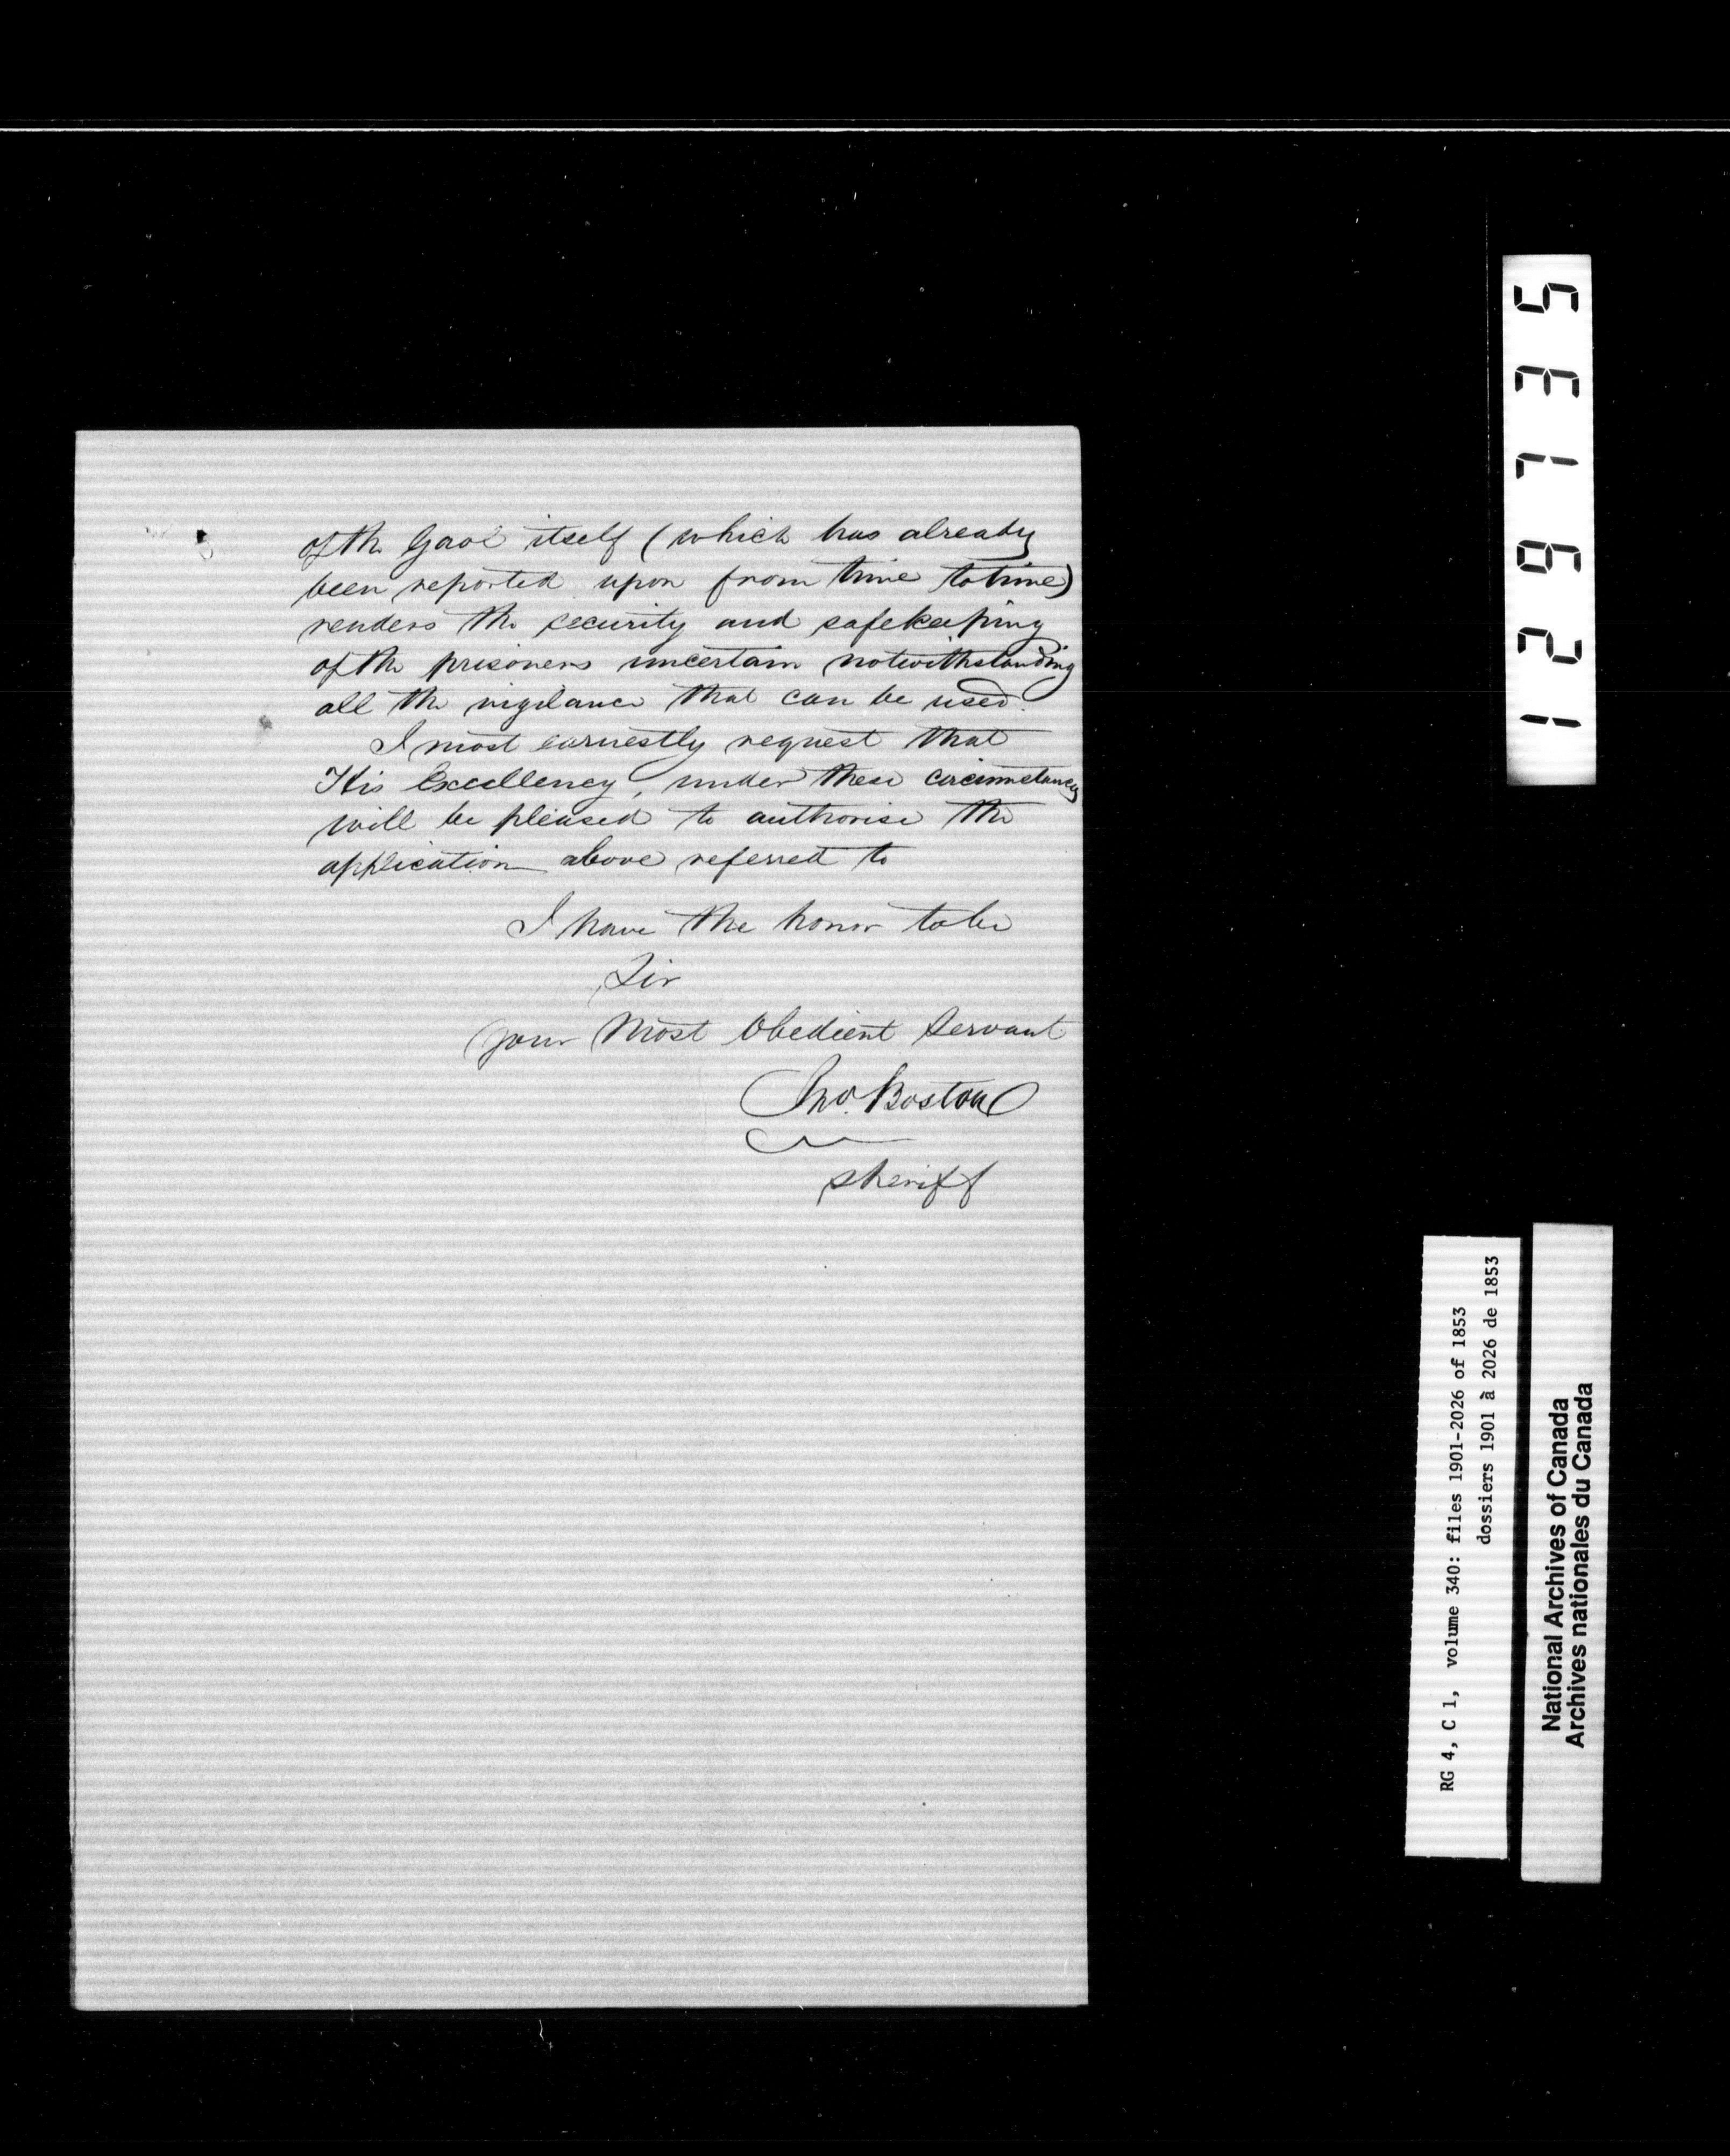 of the Gaol itself (which has already
been reported upon from time to time)
renders the security and safekeeping
of the prisoners uncertain notwithstanding
all the vigilance that can be used.
I most earnestly request that
His Excellency, under these circumstances
will be pleased to authorise the
application above referred to
I have the honor to be
Sir
your Most Obedient Servant
Jno. Boston
Sheriff
129735
RG 4, C 1, volume 340: files 1901-2026 of 1853
dossiers 1901 à 2026 de 1853
National Archives of Canada
Archives nationales du Canada